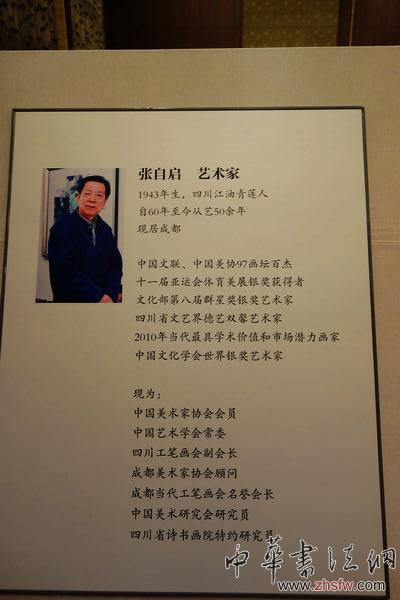 张自启　艺术家
1943年生，四川江油青莲人
自60年至今从艺50余年
现居成都
中国文联、中国美协97画坛百杰
十一届亚运会体育美展银奖获得者
文化部第八届群星奖银奖艺术家
四川省文艺界德艺双馨艺术家
2010年当代最具学术价值和市场潜力画家
中国文化学会世界银奖艺术家
现为：
中国美术家协会会员
中国艺术学会常委
四川工笔画会副会长
成都美术家协会顾问
成都当代工笔画会名誉会长
中国美术研究会研究员
四川省诗书画院特约研究员
中華書法網
www.zhsfw.com